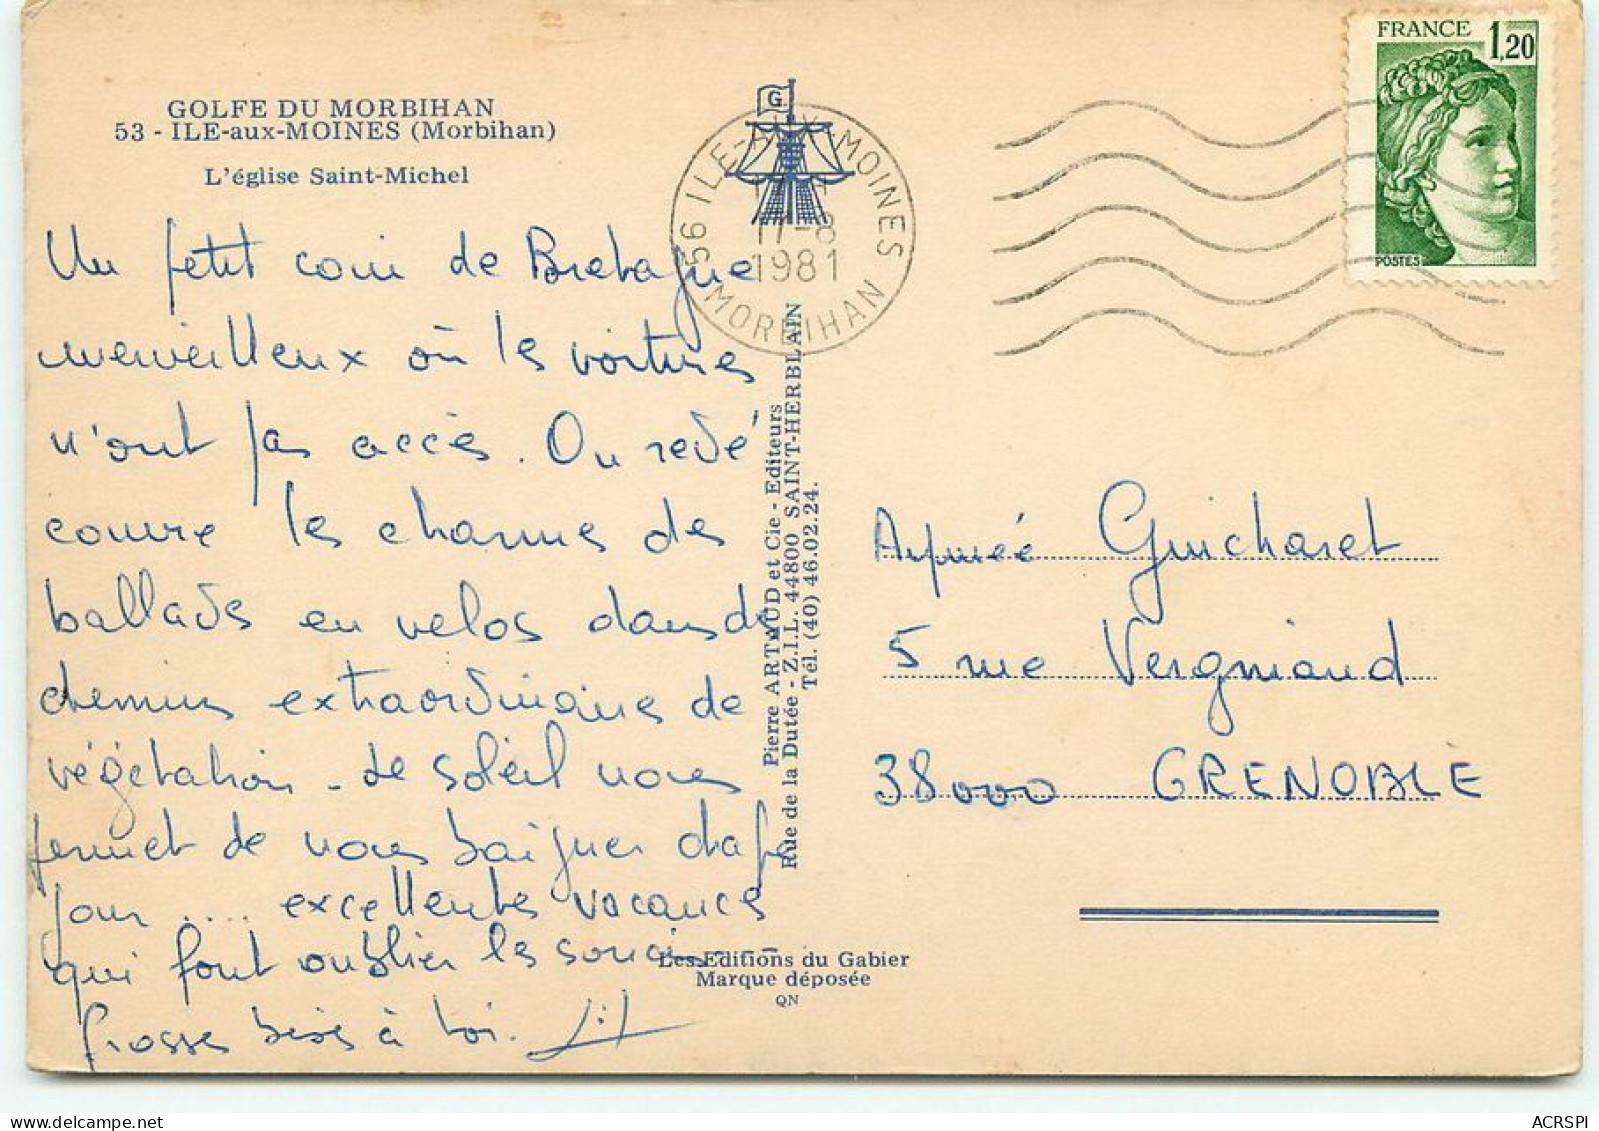 GOLFE DU MORBIHAN
53 - ILE-aux-MOINES (Morbihan)
L'église Saint-Michel
Un petit coin de Bretagne
merveilleux où les voitures
n'ont pas accès. On redé
couvre les charmes des
ballades en velos dans de
chemins extraordinaire de
végétation - le soleil nous
permet de nous baigner chaque
jour .... excellentes vacances
qui font oublier les soucis
Grosse bises à toi.
G
56 ILE-AUX-MOINES
17-8
1981
MORBIHAN
FRANCE 1,20
POSTES
Pierre ARTAUD et Cie - Editeurs
Rue de la Dutée - Z.I.L. 44800 SAINT-HERBLAIN
Tél. (40) 46.02.24.
Les Editions du Gabier
Marque déposée
QN
Aymée Guicharet
5 rue Vergniaud
38000 GRENOBLE
ACRSPI